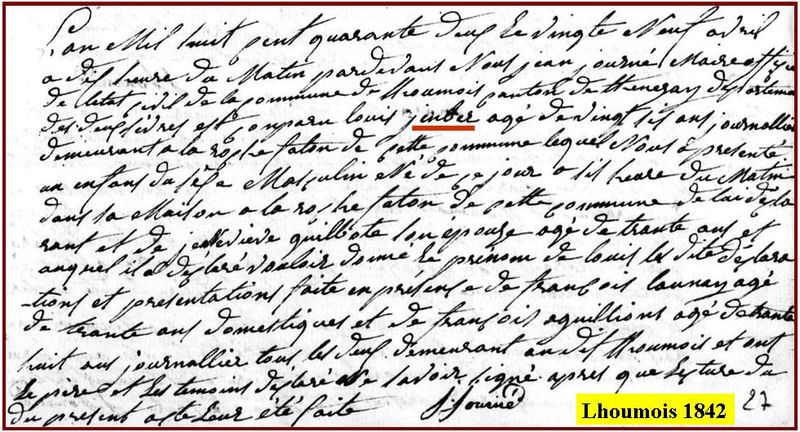 L'an Mil huit cent quarante deux Le vingte Neuf avril
a dix heure du Matin pardevant Nous jean journé Maire officie
de letat civil de la commune de Lhoumois canton de thenezay departeme
des deux sèvres est comparu louis jouber agé de vingt six ans journallier
demeurant a la roche faton de cette commune lequel Nous à présenté
un enfans du sexe Masculin Né de ce jour a six heure du Matin
dans sa Maison a la roche faton de cette commune de lui decla
rant et de jeneviève quilliote son epouse agé de trante ans et
auquel il a déclaré vouloir donné le prénom de louis les dite déclara
tions et présentations faite en présence de françois launay agé
de trante ans domestiques et de françois aguillions agé de trante
huit ans journallier tous les deux demeurant au dit lhoumois et ont
Le père et les temoins déclaré Ne savoir signé apres que lecture du
du present acte leur été faite J. Journé
27
Lhoumois 1842